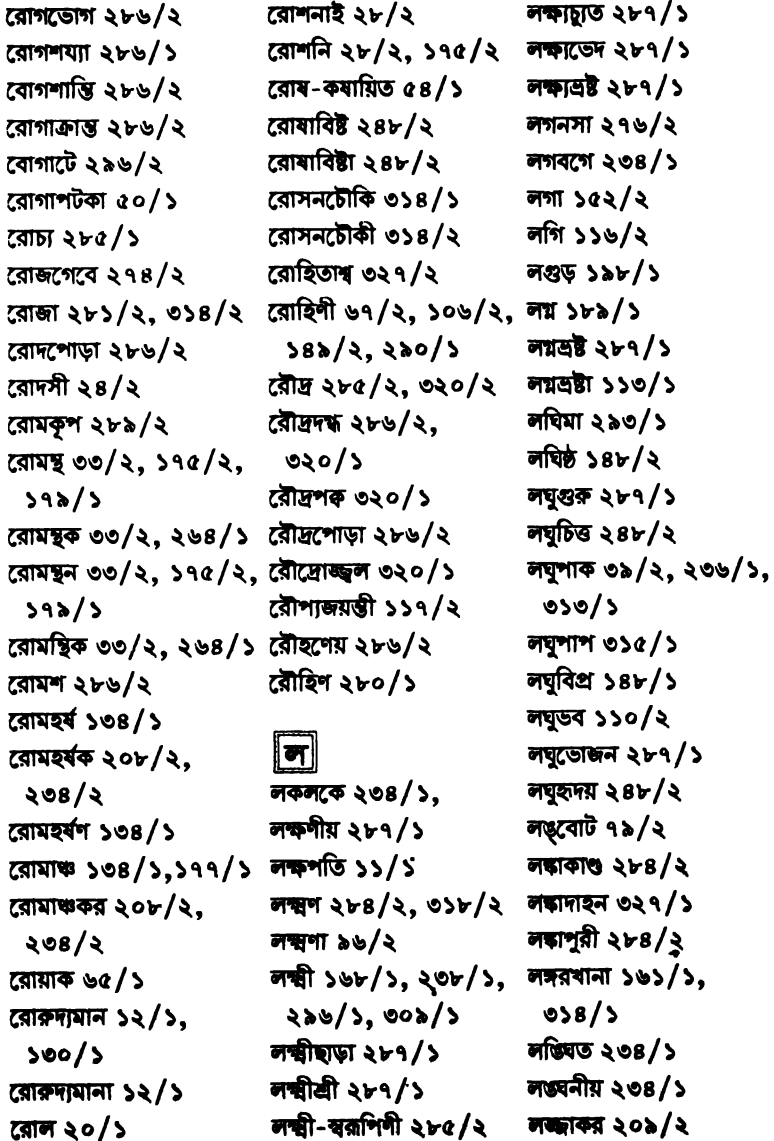 রোগভোগ ২৮৬/২
রোগশয্যা ২৮৬/১
বোগশান্তি ২৮৬/২
রোগাক্রান্ত ২৮৬/২
বোগাটে ২৯৬/২
রোগাপটকা ৫০/১
রোচ্য ২৮৫/১
রোজগেবে ২৭৪/২
রোজা ২৮১/২, ৩১৪/২
রোদপোড়া ২৮৬/২
রোদসী ২৪/২
রোমকূপ ২৮৯/২
রোমন্থ ৩৩/২, ১৭৫/২,
১৭৯/১
রোমন্থক ৩৩/২, ২৬৪/১
রোমন্থন ৩৩/২, ১৭৫/২,
১৭৯/১
রোমন্থিক ৩৩/২, ২৬৪/১
রোমশ ২৮৬/২
রোমহর্ষ ১৩৪/১
রোমহর্ষক ২০৮/২,
২৩৪/২
রোমহর্ষণ ১৩৪/১
রোমাঞ্চ ১৩৪/১,১৭৭/১
রোমাঞ্চকর ২০৮/২,
২৩৪/২
রোয়াক ৬৫/১
রোরুদ্যমান ১২/১,
১৩০/১
রোরুদ্যমানা ১২/১
রোল ২০/১
রোশনাই ২৮/২
রোশনি ২৮/২, ১৭৫/২
রোষ-কষায়িত ৫৪/১
রোষাবিষ্ট ২৪৮/২
রোষাবিষ্টা ২৪৮/২
রোসনচৌকি ৩১৪/১
রোসনচৌকী ৩১৪/২
রোহিতাশ্ব ৩২৭/২
রোহিণী ৬৭/২, ১০৬/২,
১৪৯/২, ২৯০/১
রৌদ্র ২৮৫/২, ৩২০/২
রৌদ্রদগ্ধ ২৮৬/২,
৩২০/১
রৌদ্রপক্ব ৩২০/১
রৌদ্রপোড়া ২৮৬/২
রৌদ্রোজ্জ্বল ৩২০/১
রৌপ্যজয়ন্তী ১১৭/২
রৌহণেয় ২৮৬/২
রৌহিণ ২৮০/১
ল
লকলকে ২৩৪/১,
লক্ষণীয় ২৮৭/১
লক্ষপতি ১১/১
লক্ষ্মণ ২৮৪/২, ৩১৮/২
লক্ষ্মণা ৯৬/২
লক্ষ্মী ১৬৮/১, ২৩৮/১,
২৯৬/১, ৩০৯/১
লক্ষ্মীছাড়া ২৮৭/১
লক্ষ্মীশ্রী ২৮৭/১
লক্ষ্মী-স্বরূপিণী ২৮৫/২
লক্ষ্যচ্যুত ২৮৭/১
লক্ষ্যভেদ ২৮৭/১
লক্ষ্যভ্রষ্ট ২৮৭/১
লগনসা ২৭৬/২
লগবগে ২৩৪/১
লগা ১৫২/২
লগি ১১৬/২
লগুড় ১৯৮/১
লগ্ন ১৮৯/১
লগ্নভ্রষ্ট ২৮৭/১
লগ্নভ্রষ্টা ১১৩/১
লঘিমা ২৯৩/১
লঘিষ্ঠ ১৪৮/২
লঘুগুরু ২৮৭/১
লঘুচিত্ত ২৪৮/২
লঘুপাক ৩৯/২, ২৩৬/১,
৩১৩/১
লঘুপাপ ৩১৫/১
লঘুবিপ্র ১৪৮/১
লঘুভব ১১০/২
লঘুভোজন ২৮৭/১
লঘুহৃদয় ২৪৮/২
লঙ্‌বোট ৭৯/২
লঙ্কাকাণ্ড ২৮৪/২
লঙ্কাদাহন ৩২৭/১
লঙ্কাপুরী ২৮৪/২
লঙ্গরখানা ১৬১/১,
৩১৪/১
লঙ্ঘিত ২৩৪/১
লঙ্ঘনীয় ২৩৪/১
লজ্জাকর ২০৯/২